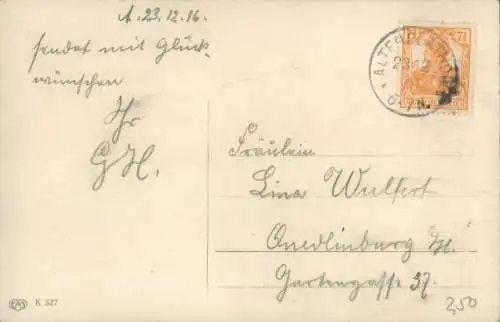 A. 23.12.16.
sendet mit Glück-
wünschen
Ihr
G.H.
Fräulein
Lina Wulfert
Quedlinburg a/H.
Gartengasse 37.
7½
K 527
2,50